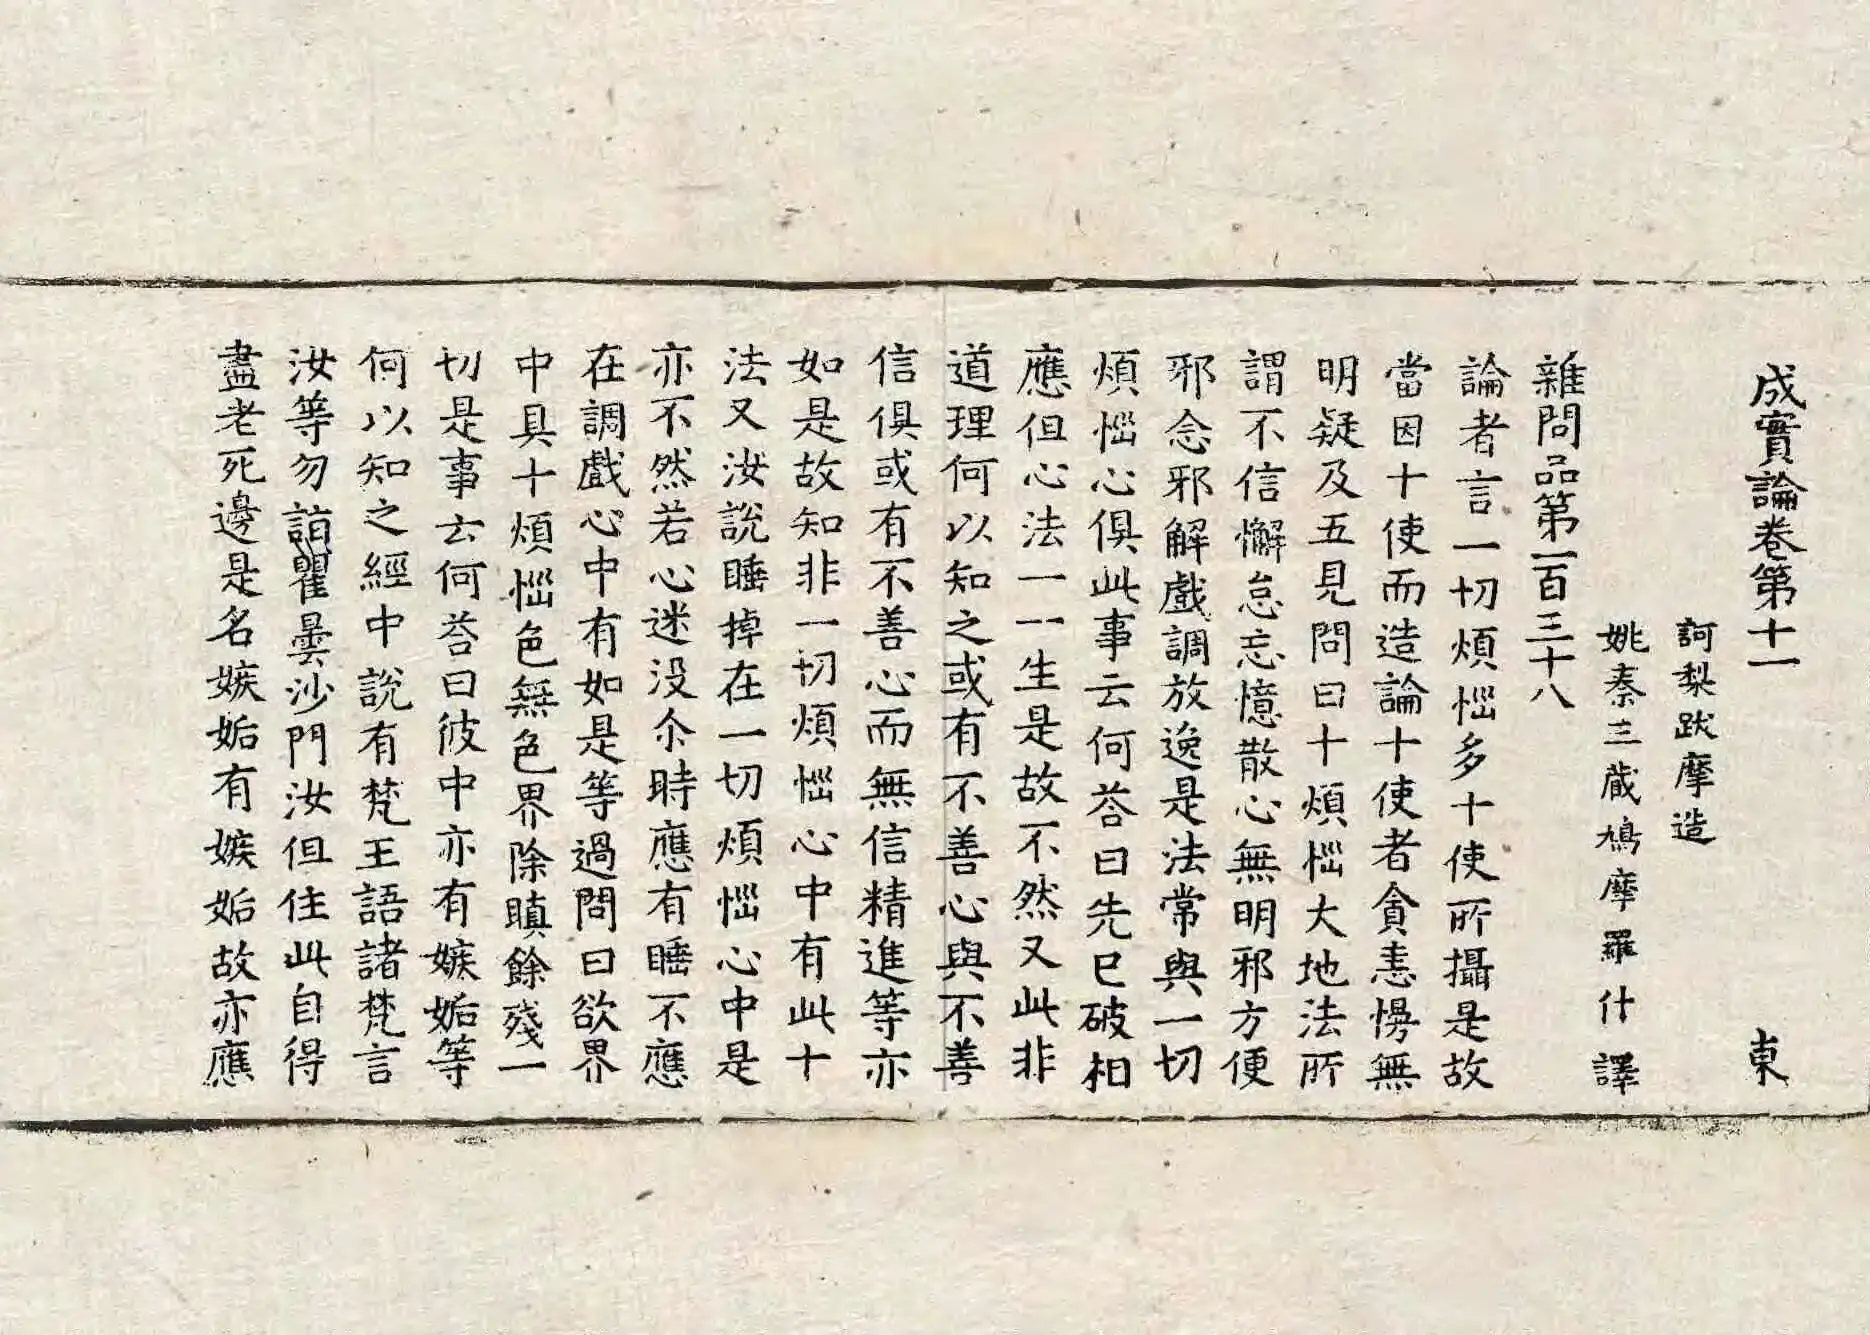 成實論卷第十一 東
訶梨跋摩造
姚秦三藏鳩摩羅什譯
雜問品第一百三十八
論者言一切煩惱多十使所攝是故
當因十使而造論十使者貪恚慢無
明疑及五見問曰十煩惱大地法所
謂不信懈怠忘憶散心無明邪方便
邪念邪解戲調放逸是法常與一切
煩惱心俱此事云何荅曰先已破相
應但心法一一生是故不然又此非
道理何以知之或有不善心與不善
信俱或有不善心而無信精進等亦
如是故知非一切煩惱心中有此十
法又汝說睡掉在一切煩惱心中是
亦不然若心迷没尒時應有睡不應
在調戲心中有如是等過問曰欲界
中具十煩惱色無色界除瞋餘殘一
切是事云何荅曰彼中亦有嫉妬等
何以知之經中說有梵王語諸梵言
汝等勿詣瞿曇沙門汝但住此自得
盡老死邊是名嫉妬有嫉妬故亦應